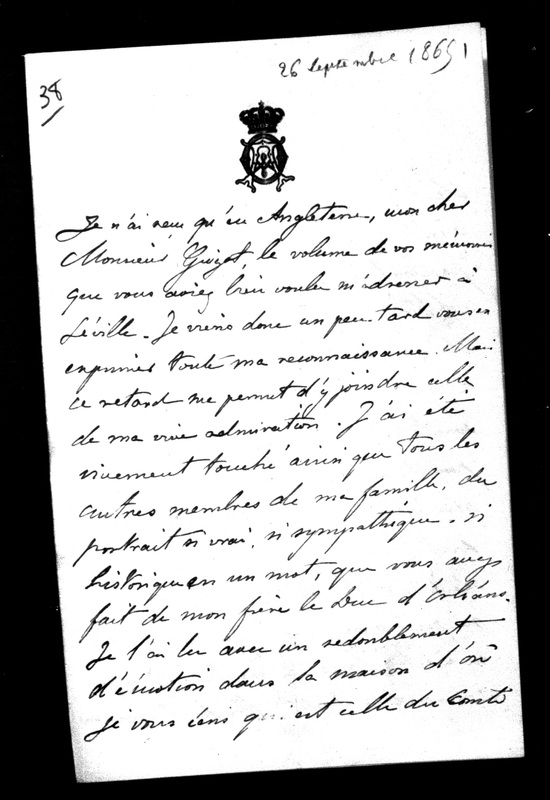 26 septembre 1865
38
Je n'ai reçu qu'en Angleterre, mon cher
Monsieur Guizot le volume de vos mémoires
que vous aviez bien voulu m'adresser à
Séville. Je viens donc un peu tard vous en
exprimer toute ma reconnaissance. Mais
ce retard me permet d'y joindre celle
de ma vive admiration. J'ai été
vivement touché ainsi que tous les
autres membres de ma famille, du
portrait si vrai, si sympathique, si
historique en un mot, que vous avez
fait de mon frère le Duc d'Orléans.
Je l'ai lu avec un redoublement
d'émotion dans la maison d'où
je vous écris qui est celle du Comte